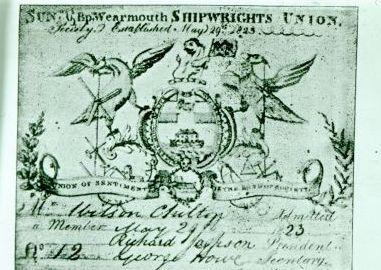 SUND. & BP. WEARMOUTH SHIPWRIGHTS UNION.
Society, Established May 29th 1823
UNION OF SENTIMENT IS THE BOND OF SOCIETY
Mr Wilson Admitted
a Member May 29 1823
Richard President
No. 12 George Howe Secretary